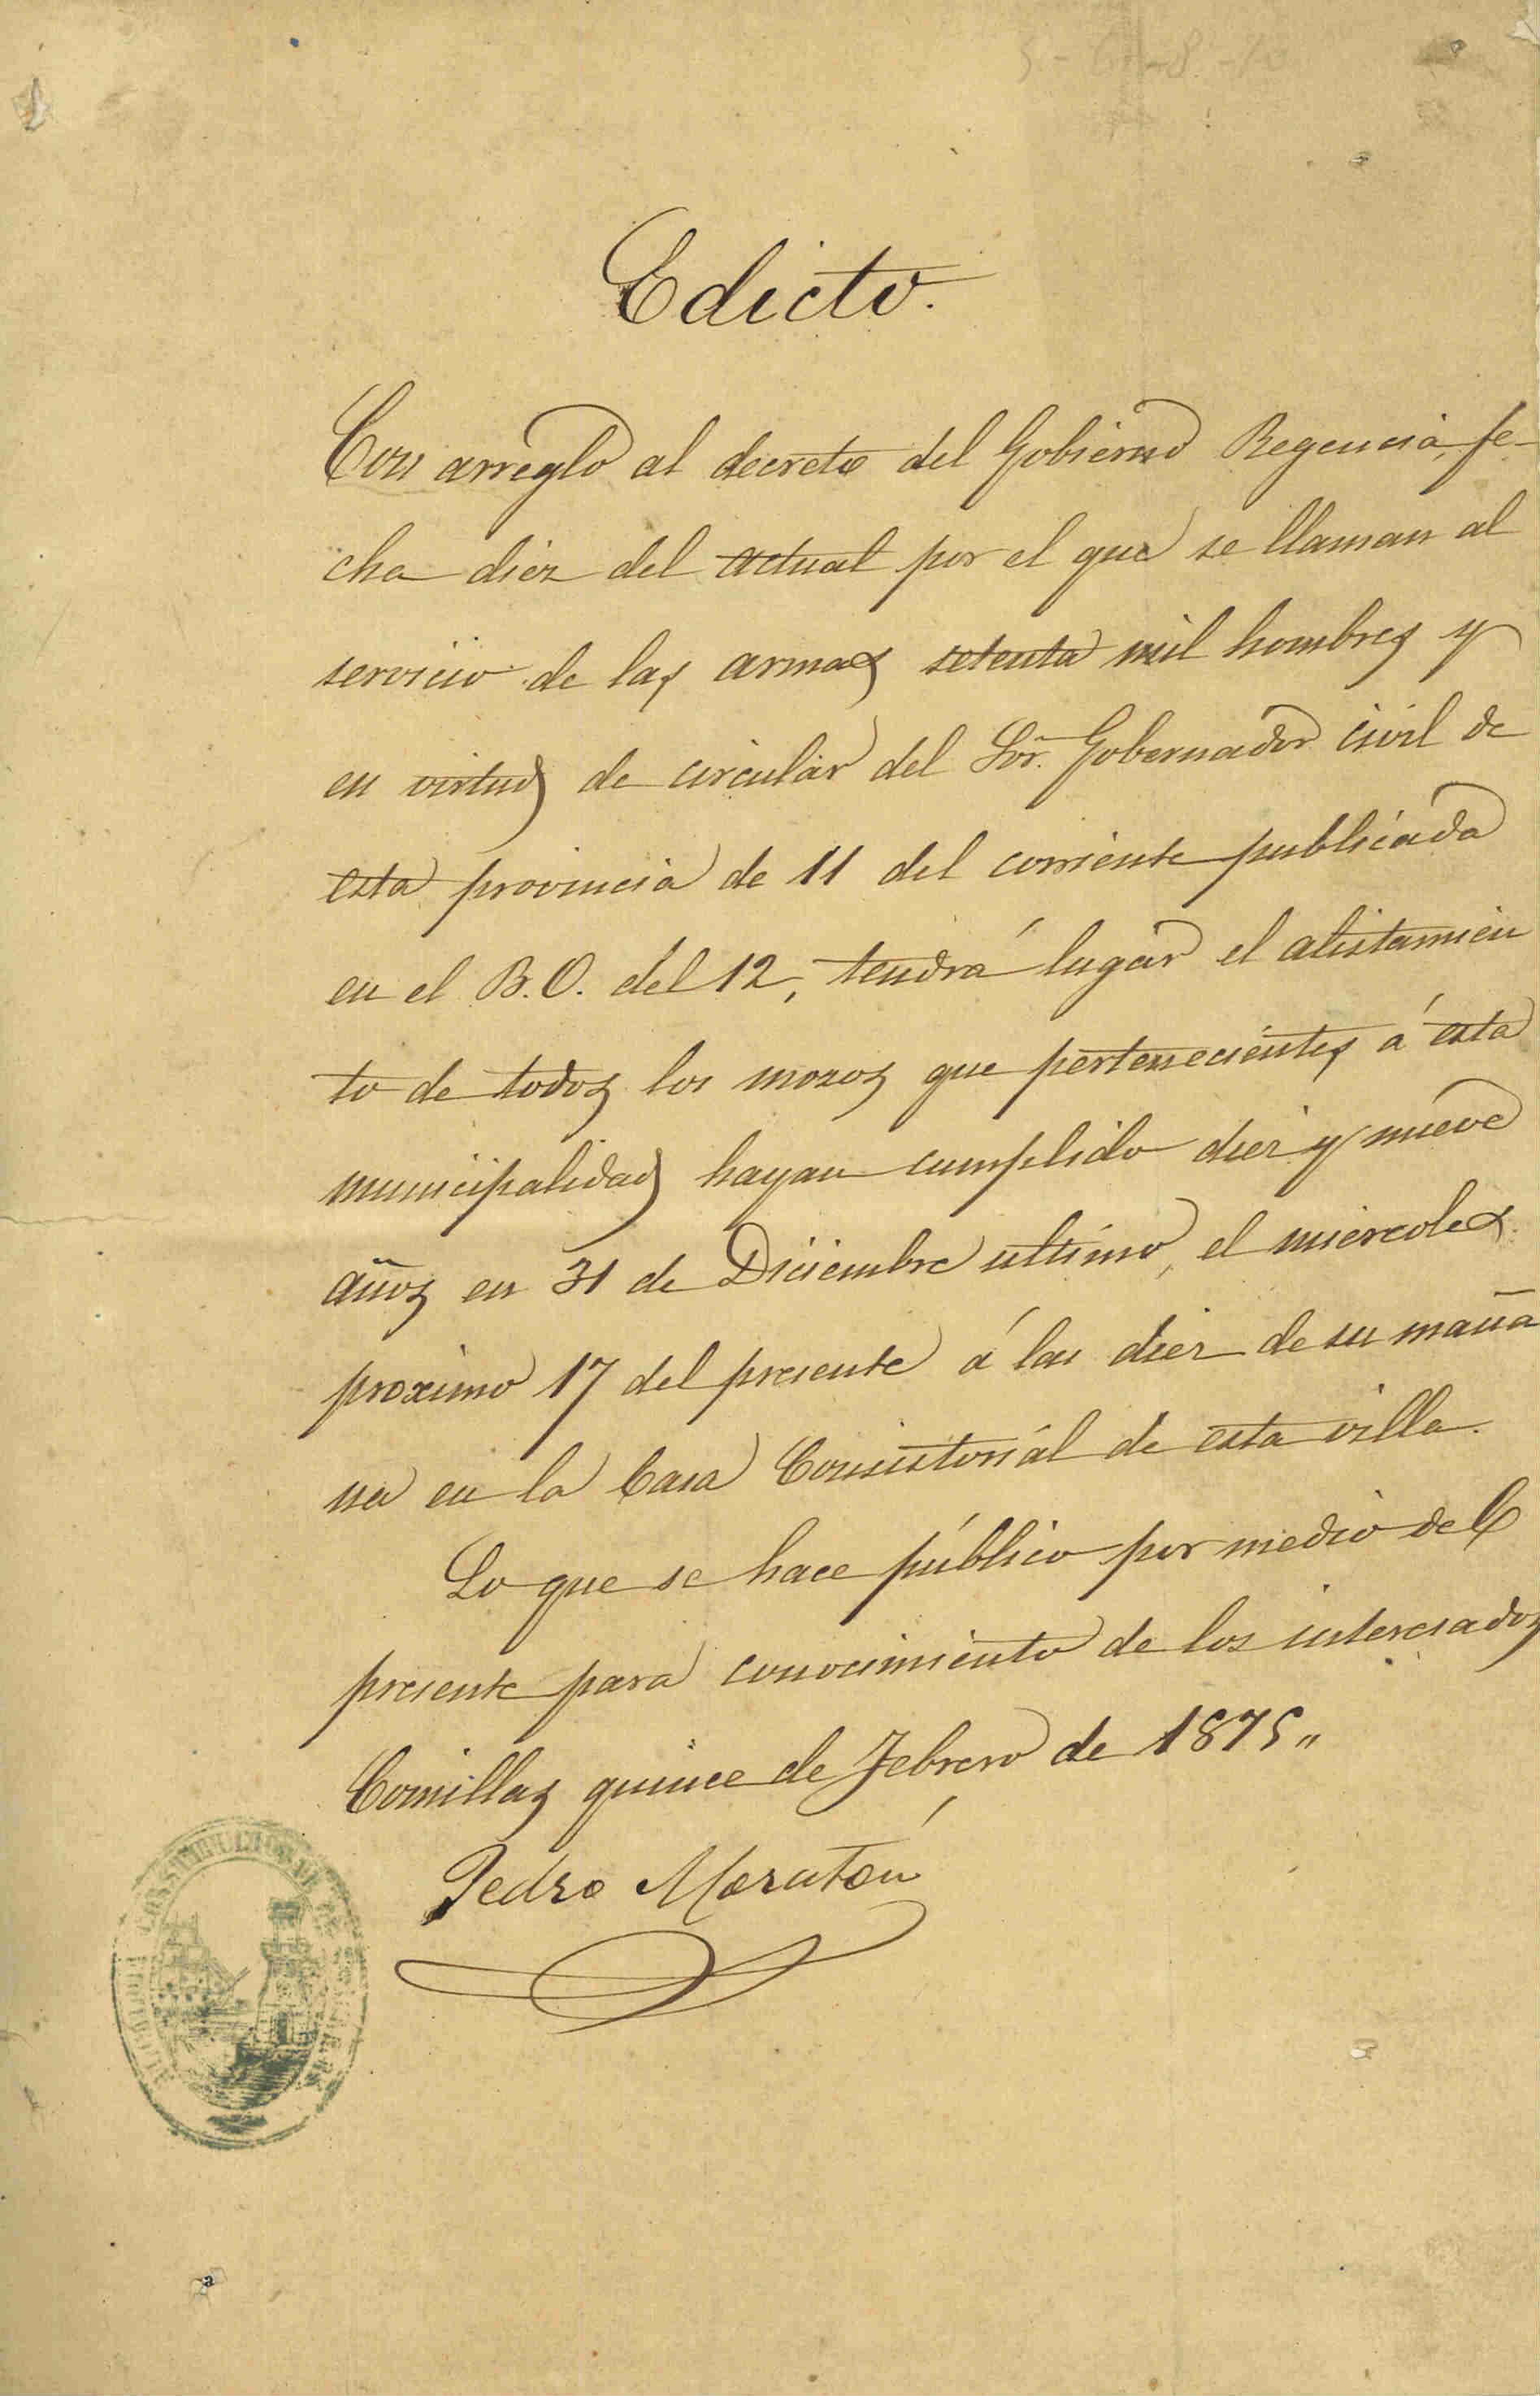 Edicto.
Con arreglo al decreto del Gobierno Regencia, fe-
cha diez del actual por el que se llaman al
servicio de las armas setenta mil hombres y
en virtud de circular del Sor. Gobernador civil de
esta provincia de 11 del corriente publicada
en el B.O. del 12, tendrá lugar el alistamien
to de todos los mozos que pertenecientes á esta
municipalidad hayan cumplido diez y nueve
años en 31 de Diciembre ultimo, el miercoles
proximo 17 del presente á las diez de su maña
na en la Casa Consistorial de esta villa.
Lo que se hace público por medio del
presente para conocimiento de los interesados
Comillas quince de Febrero de 1875„
Pedro Moratón
ALCALDIA CONSTITUCIONAL DE